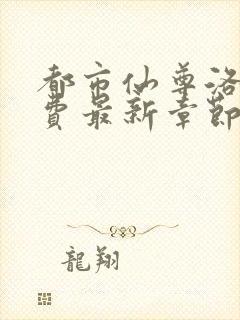 都市仙尊洛
費最新章節
龍翔